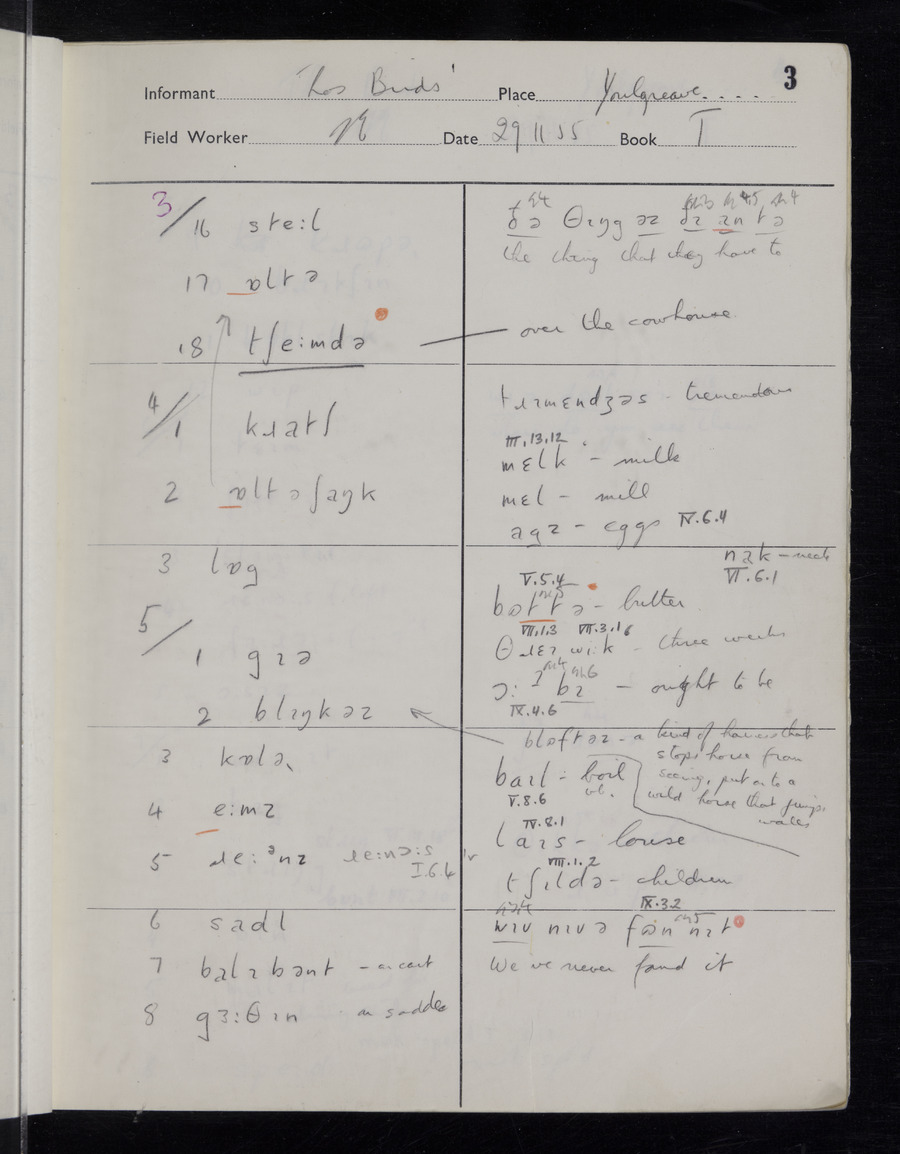 3
Informant Place Youlgreave....
Field Worker Date 29 11 55 Book I
3/16 ste:l
17 ɒltə
18 tʃe:mdə
4/1 kɹatʃ
2 ɒltəʃaŋk
3 lɒg
5/1 gɪə
2 blɪŋkəz
3 kɒlə
4 e:mz
5 ɹe:ᵊnz ɹe:nɔ:s
I.6.4
6 sadl
7 balɪbant - on cart
8 gɜ:θɪn on saddle
ðə θɪŋg əz ðɪ an tə
the thing that they have to
over the cowhouse
tɹɪmɛndʒəs - tremendous
III,13,12
mɛlk - milk
mɛl - mill
agz - eggs IV.6.4
nak - neck
VI.6.1
V.5.4
bottə - butter
VII,1.3 VII.3,16
θɹɛɪ wik - three weeks
ɔ: t bɪ - ought to be
IX.4.6
bloftəz - a kind of harness that
stops horse from
seeing, put on to a
wild horse that jumps
walls
baɪl - boil
vb.
V.8.6
IV.8.1
laɪs - louse
VIII.1.2
tʃɪldə - children
IX.3.2
wɪv nɪvə fɔn nɪt
We've never found it